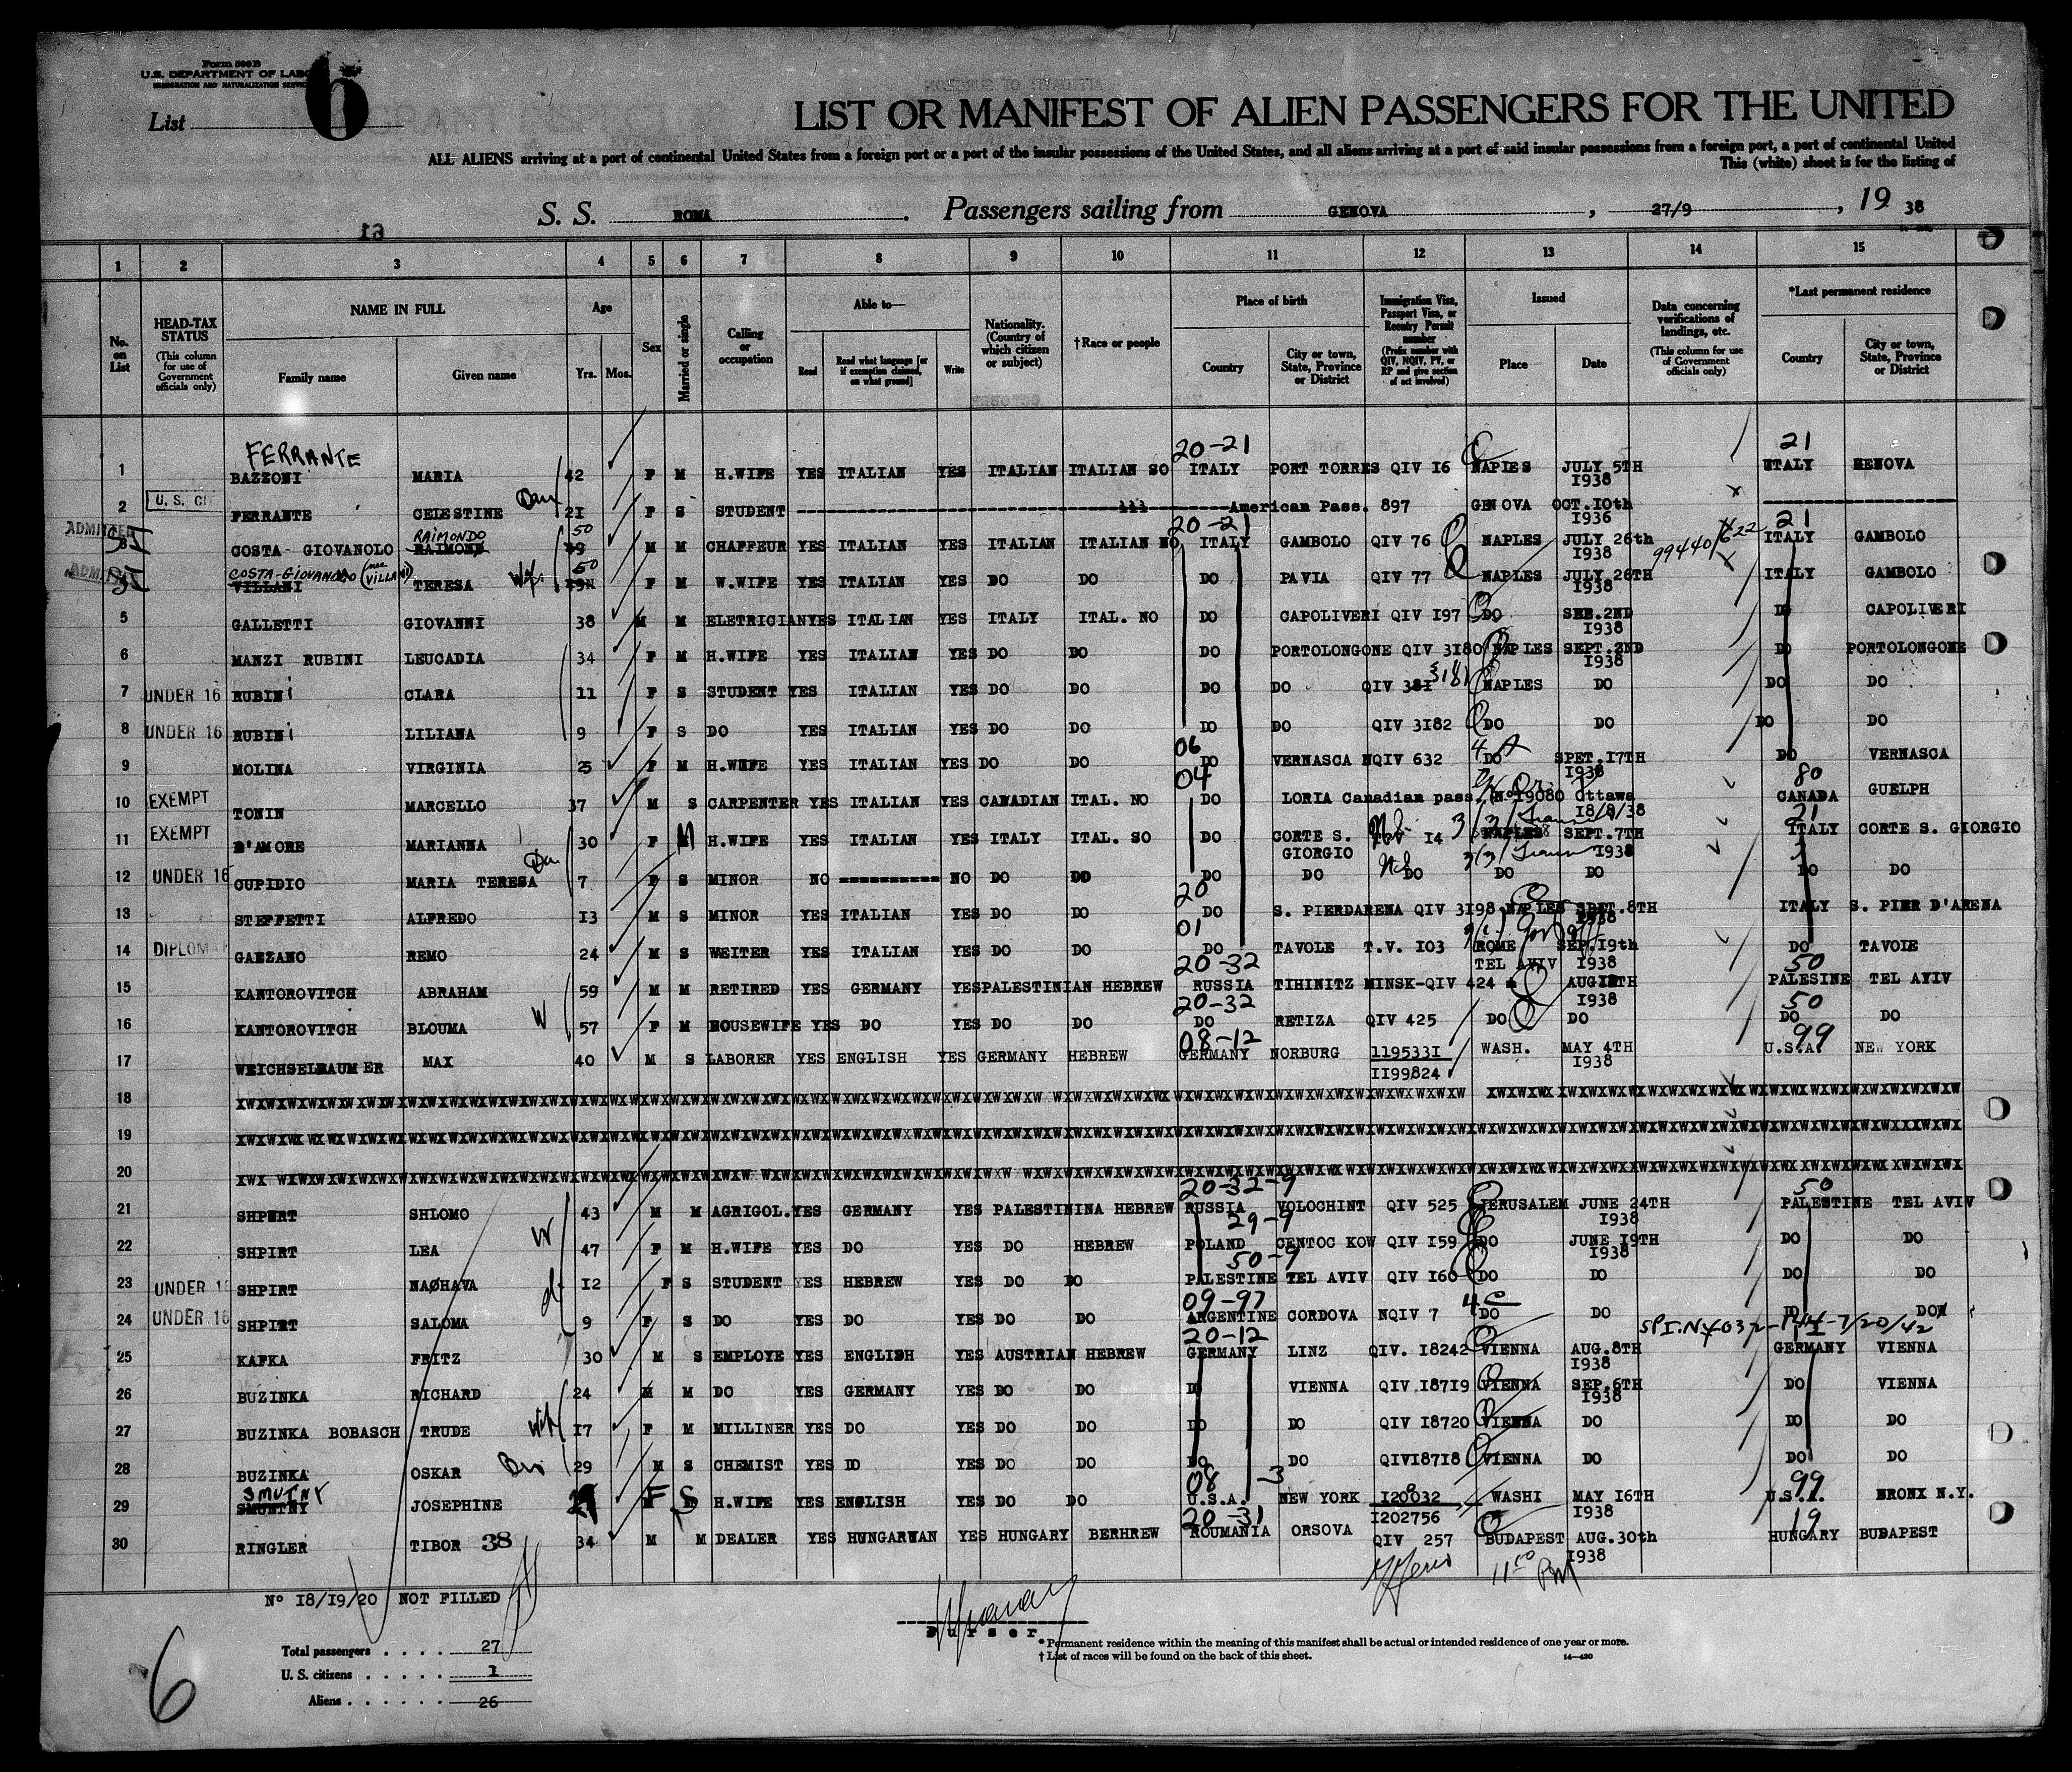 Form 500 B
U.S. DEPARTMENT OF LABOR
IMMIGRATION AND NATURALIZATION SERVICE
List 6
LIST OR MANIFEST OF ALIEN PASSENGERS FOR THE UNITED
ALL ALIENS arriving at a port of continental United States from a foreign port or a port of the insular possessions of the United States, and all aliens arriving at a port of said insular possessions from a foreign port, a port of continental United
This (white) sheet is for the listing of
S. S. ROMA. Passengers sailing from GENOVA, 27/9, 19 38
1 2 3 4 5 6 7 8 9 10 11 12 13 14 15
No. on List
HEAD-TAX STATUS (This column for use of Government officials only)
NAME IN FULL Family name Given name
Age Yrs. Mos.
Sex
Married or single
Calling or occupation
Able to— Read Read what language [or if exemption claimed, on what ground] Write
Nationality. (Country of which citizen or subject)
†Race or people
Place of birth Country City or town, State, Province or District
Immigration Visa, Passport Visa, or Reentry Permit number (Prefix number with QIV, NQIV, PV, or RP and give section of act involved)
Issued Place Date
Data concerning verifications of landings, etc. (This column for use of Government officials only)
*Last permanent residence Country City or town, State, Province or District
FERRANTE 20-21 21
1 BAZZONI MARIA 42 F M H.WIFE YES ITALIAN YES ITALIAN ITALIAN SO ITALY PORT TORRES QIV I6 NAPLES JULY 5TH I938 ITALY GENOVA
2 U. S. CI FERRANTE CELESTINE Dau 2I F S STUDENT American Pass. 897 GENOVA OCT.I0th I936
ADMITTED RAIMONDO 50 20-21 21
3 COSTA- GIOVANOLO RAIMOND 49 M M CHAFFEUR YES ITALIAN YES ITALIAN ITALIAN NO ITALY GAMBOLO QIV 76 NAPLES JULY 26th I938 99440/622 ITALY GAMBOLO
COSTA-GIOVANOLO (nee VILLANI) 50
VILLANI TERESA Wf. 49 F M W.WIFE YES ITALIAN YES DO DO DO PAVIA QIV 77 NAPLES JULY 26TH I938 ITALY GAMBOLO
5 GALLETTI GIOVANNI 38 M M ELETRICIAN YES ITALIAN YES ITALY ITAL. NO DO CAPOLIVERI QIV I97 DO SEB.2ND I938 DO CAPOLIVERI
6 MANZI RUBINI LEUCADIA 34 F M H.WIFE YES ITALIAN YES DO DO DO PORTOLONGONE QIV 3I80 NAPLES SEPT.2ND I938 DO PORTOLONGONE
7 UNDER 16 RUBINI CLARA 11 F S STUDENT YES ITALIAN YES DO DO DO DO QIV 38I 3181 NAPLES DO DO DO
8 UNDER 16 RUBINI LILIANA 9 F S DO YES ITALIAN YES DO DO DO DO QIV 3I82 DO DO DO DO
9 MOLINA VIRGINIA 25 F M H.WIFE YES ITALIAN YES DO DO 06 DO VERNASCA NQIV 632 DO SPET.I7TH I938 DO VERNASCA
10 EXEMPT TONIN MARCELLO 37 M S CARPENTER YES ITALIAN YES CANADIAN ITAL. NO 04 DO LORIA Canadian pass. N°I9080 Ottawa I8/8/38 80 CANADA GUELPH
11 EXEMPT D'AMORE MARIANNA 30 F M H.WIFE YES ITALIAN YES ITALY ITAL. SO DO CORTE S. GIORGIO I4 NAPLES SEPT.7TH I938 21 ITALY CORTE S. GIORGIO
12 UNDER 16 CUPIDIO MARIA TERESA Dau 7 F S MINOR NO NO DO DO DO DO DO DO DO DO DO
13 STEFFETTI ALFREDO I3 M S MINOR YES ITALIAN YES DO DO 20 DO S. PIERDARENA QIV 3I98 NAPLES SPET.8TH I938 ITALY S. PIER D'ARENA
14 DIPLOMA GAZZANO REMO 24 M S WEITER YES ITALIAN YES DO DO 01 DO TAVOLE T.V. I03 ROME SEP.I9th I938 DO TAVOLE
15 KANTOROVITCH ABRAHAM 59 M M RETIRED YES GERMANY YES PALESTINIAN HEBREW 20-32 RUSSIA TIHINITZ MINSK-QIV 424 TEL AVIV I938 50 PALESINE TEL AVIV
16 KANTOROVITCH BLOUMA W 57 F M HOUSEWIFE YES DO YES DO DO 20-32 DO RETIZA QIV 425 DO DO 50 DO DO
17 WEICHSELBAUMER MAX 40 M S LABORER YES ENGLISH YES GERMANY HEBREW 08-12 GERMANY NORBURG 119533I II99824 WASH. MAY 4TH I938 99 U.S.A. NEW YORK
18
19
20
21 SHPIRT SHLOMO 43 M M AGRIGOL. YES GERMANY YES PALESTININA HEBREW 20-32-9 RUSSIA VOLOCHINT QIV 525 JERUSALEM JUNE 24TH I938 50 PALESTINE TEL AVIV
22 SHPIRT LEA W 47 F M H.WIFE YES DO YES DO HEBREW 29-9 POLAND CENTOC KOW QIV I59 DO JUNE I9TH I938 DO DO
23 UNDER 16 SHPIRT NACHAVA d I2 F S STUDENT YES HEBREW YES DO DO 50-9 PALESTINE TEL AVIV QIV I60 DO DO DO DO
24 UNDER 16 SHPIRT SALOMA 9 F S DO YES DO YES DO DO 09-97 ARGENTINE CORDOVA NQIV 7 4C DO DO DO DO
25 KAFKA FRITZ 30 M S EMPLOYE YES ENGLISH YES AUSTRIAN HEBREW 20-12 GERMANY LINZ QIV. I8242 VIENNA AUG.8TH I938 GERMANY VIENNA
26 BUZINKA RICHARD 24 M M DO YES GERMANY YES DO DO DO VIENNA QIV I87I9 VIENNA SEP.6TH I938 DO VIENNA
27 BUZINKA BOBASCH TRUDE Wif I7 F M MILLINER YES DO YES DO DO DO DO QIV I8720 VIENNA DO DO DO
28 BUZINKA OSKAR 29 M S CHEMIST YES DO YES DO DO DO DO QIVI87I8 VIENNA DO DO DO
SMUTNY
29 JOSEPHINE F S H.WIFE YES ENGLISH YES DO DO 08 -3 U.S.A. NEW YORK I20032 I202756 WASHI MAY I6TH I938 99 U.S.A. BRONX N.Y.
30 RINGLER TIBOR 38 34 M M DEALER YES HUNGARWAN YES HUNGARY BERHREW 20-31 ROUMANIA ORSOVA QIV 257 BUDAPEST AUG.30th I938 19 HUNGARY BUDAPEST
N° I8/I9/20 NOT FILLED
Purser
Total passengers . . . . 27
U. S. citizens . . . . . 1
Aliens . . . . . . 26
* Permanent residence within the meaning of this manifest shall be actual or intended residence of one year or more.
† List of races will be found on the back of this sheet.
14—430
6